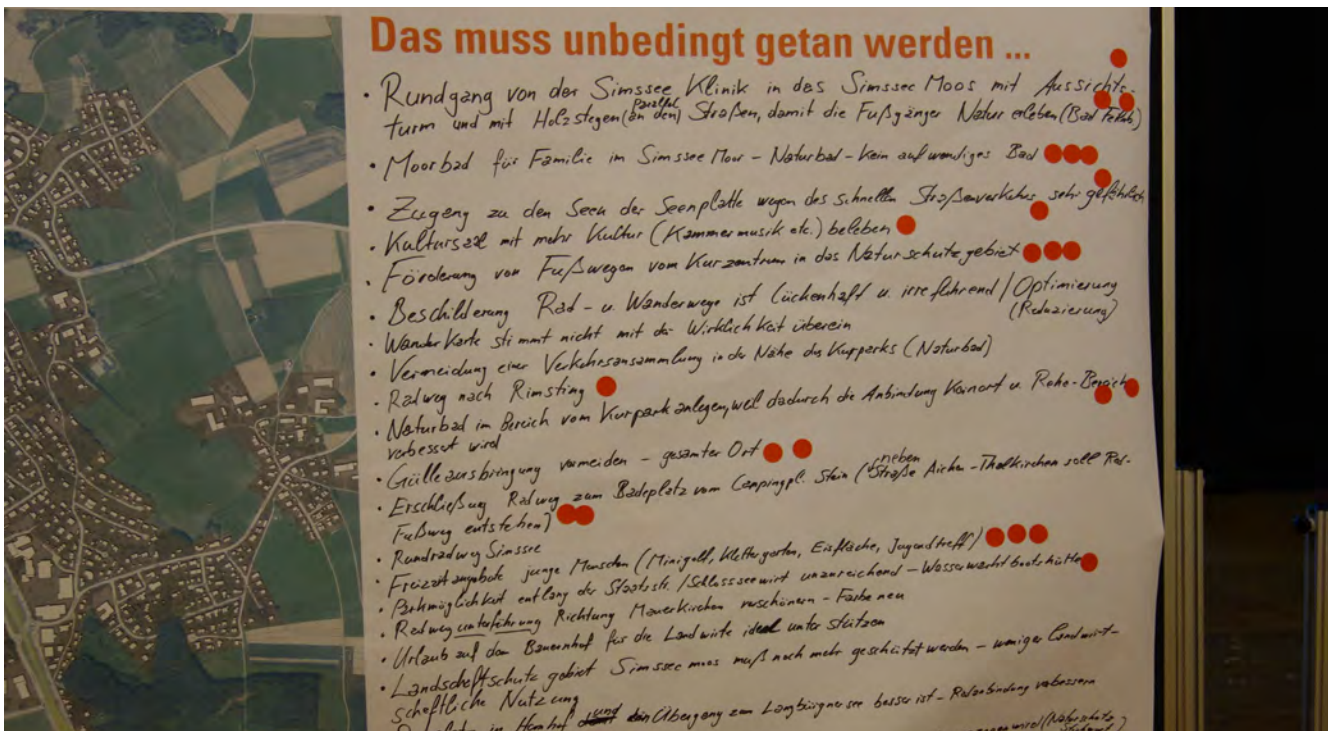 Das muss unbedingt getan werden ...
• Rundgang von der Simssee Klinik in das Simssee Moos mit Aussichts-
turm und mit Holzstegen (an den) Straßen, damit die Fußgänger Natur erleben (Bad
• Moorbad für Familie im Simssee Moor – Naturbad – Kein aufwendiges Bad
• Zugang zu den Seen der Seenplatte wegen des schnellen Straßenverkehrs sehr gefährlich
• Kultursaal mit mehr Kultur (Kammermusik etc.) beleben
• Förderung von Fußwegen vom Kurzentrum in das Naturschutzgebiet
• Beschilderung Rad- u. Wanderwege ist lückenhaft u. irreführend / Optimierung
(Reduzierung)
• Wanderkarte stimmt nicht mit der Wirklichkeit überein
• Vermeidung einer Verkehrsansammlung in der Nähe des Kurparks (Naturbad)
• Radweg nach Rimsting
• Naturbad im Bereich vom Kurpark anlegen, weil dadurch die Anbindung u. Reha-Bereich
verbessert wird
• Gülleausbringung vermeiden – gesamter Ort
neben
• Erschließung Radweg zum Badeplatz vom Campingpl. Stein (Straße Aicha – Thalkirchen soll Rad-
Fußweg entstehen)
• Rundradweg Simssee
• Freizeitangebote junge Menschen (Minigolf, Klettergarten, Eisfläche, Jugendtreff)
• Parkmöglichkeit entlang der Staatsstr. / Schlossseewirt unzureichend – Wasserwachtbootshütte
• Radwegunterführung Richtung Mauerkirchen verschönern – Farbe neu
• Urlaub auf dem Bauernhof für die Landwirte ideal unterstützen
• Landschaftschutzgebiet Simsseemoos muß noch mehr geschützt werden – weniger Landwirt-
schaftliche Nutzung
in und Übergang zum Langbürgnersee besser ist – Radanbindung verbessern